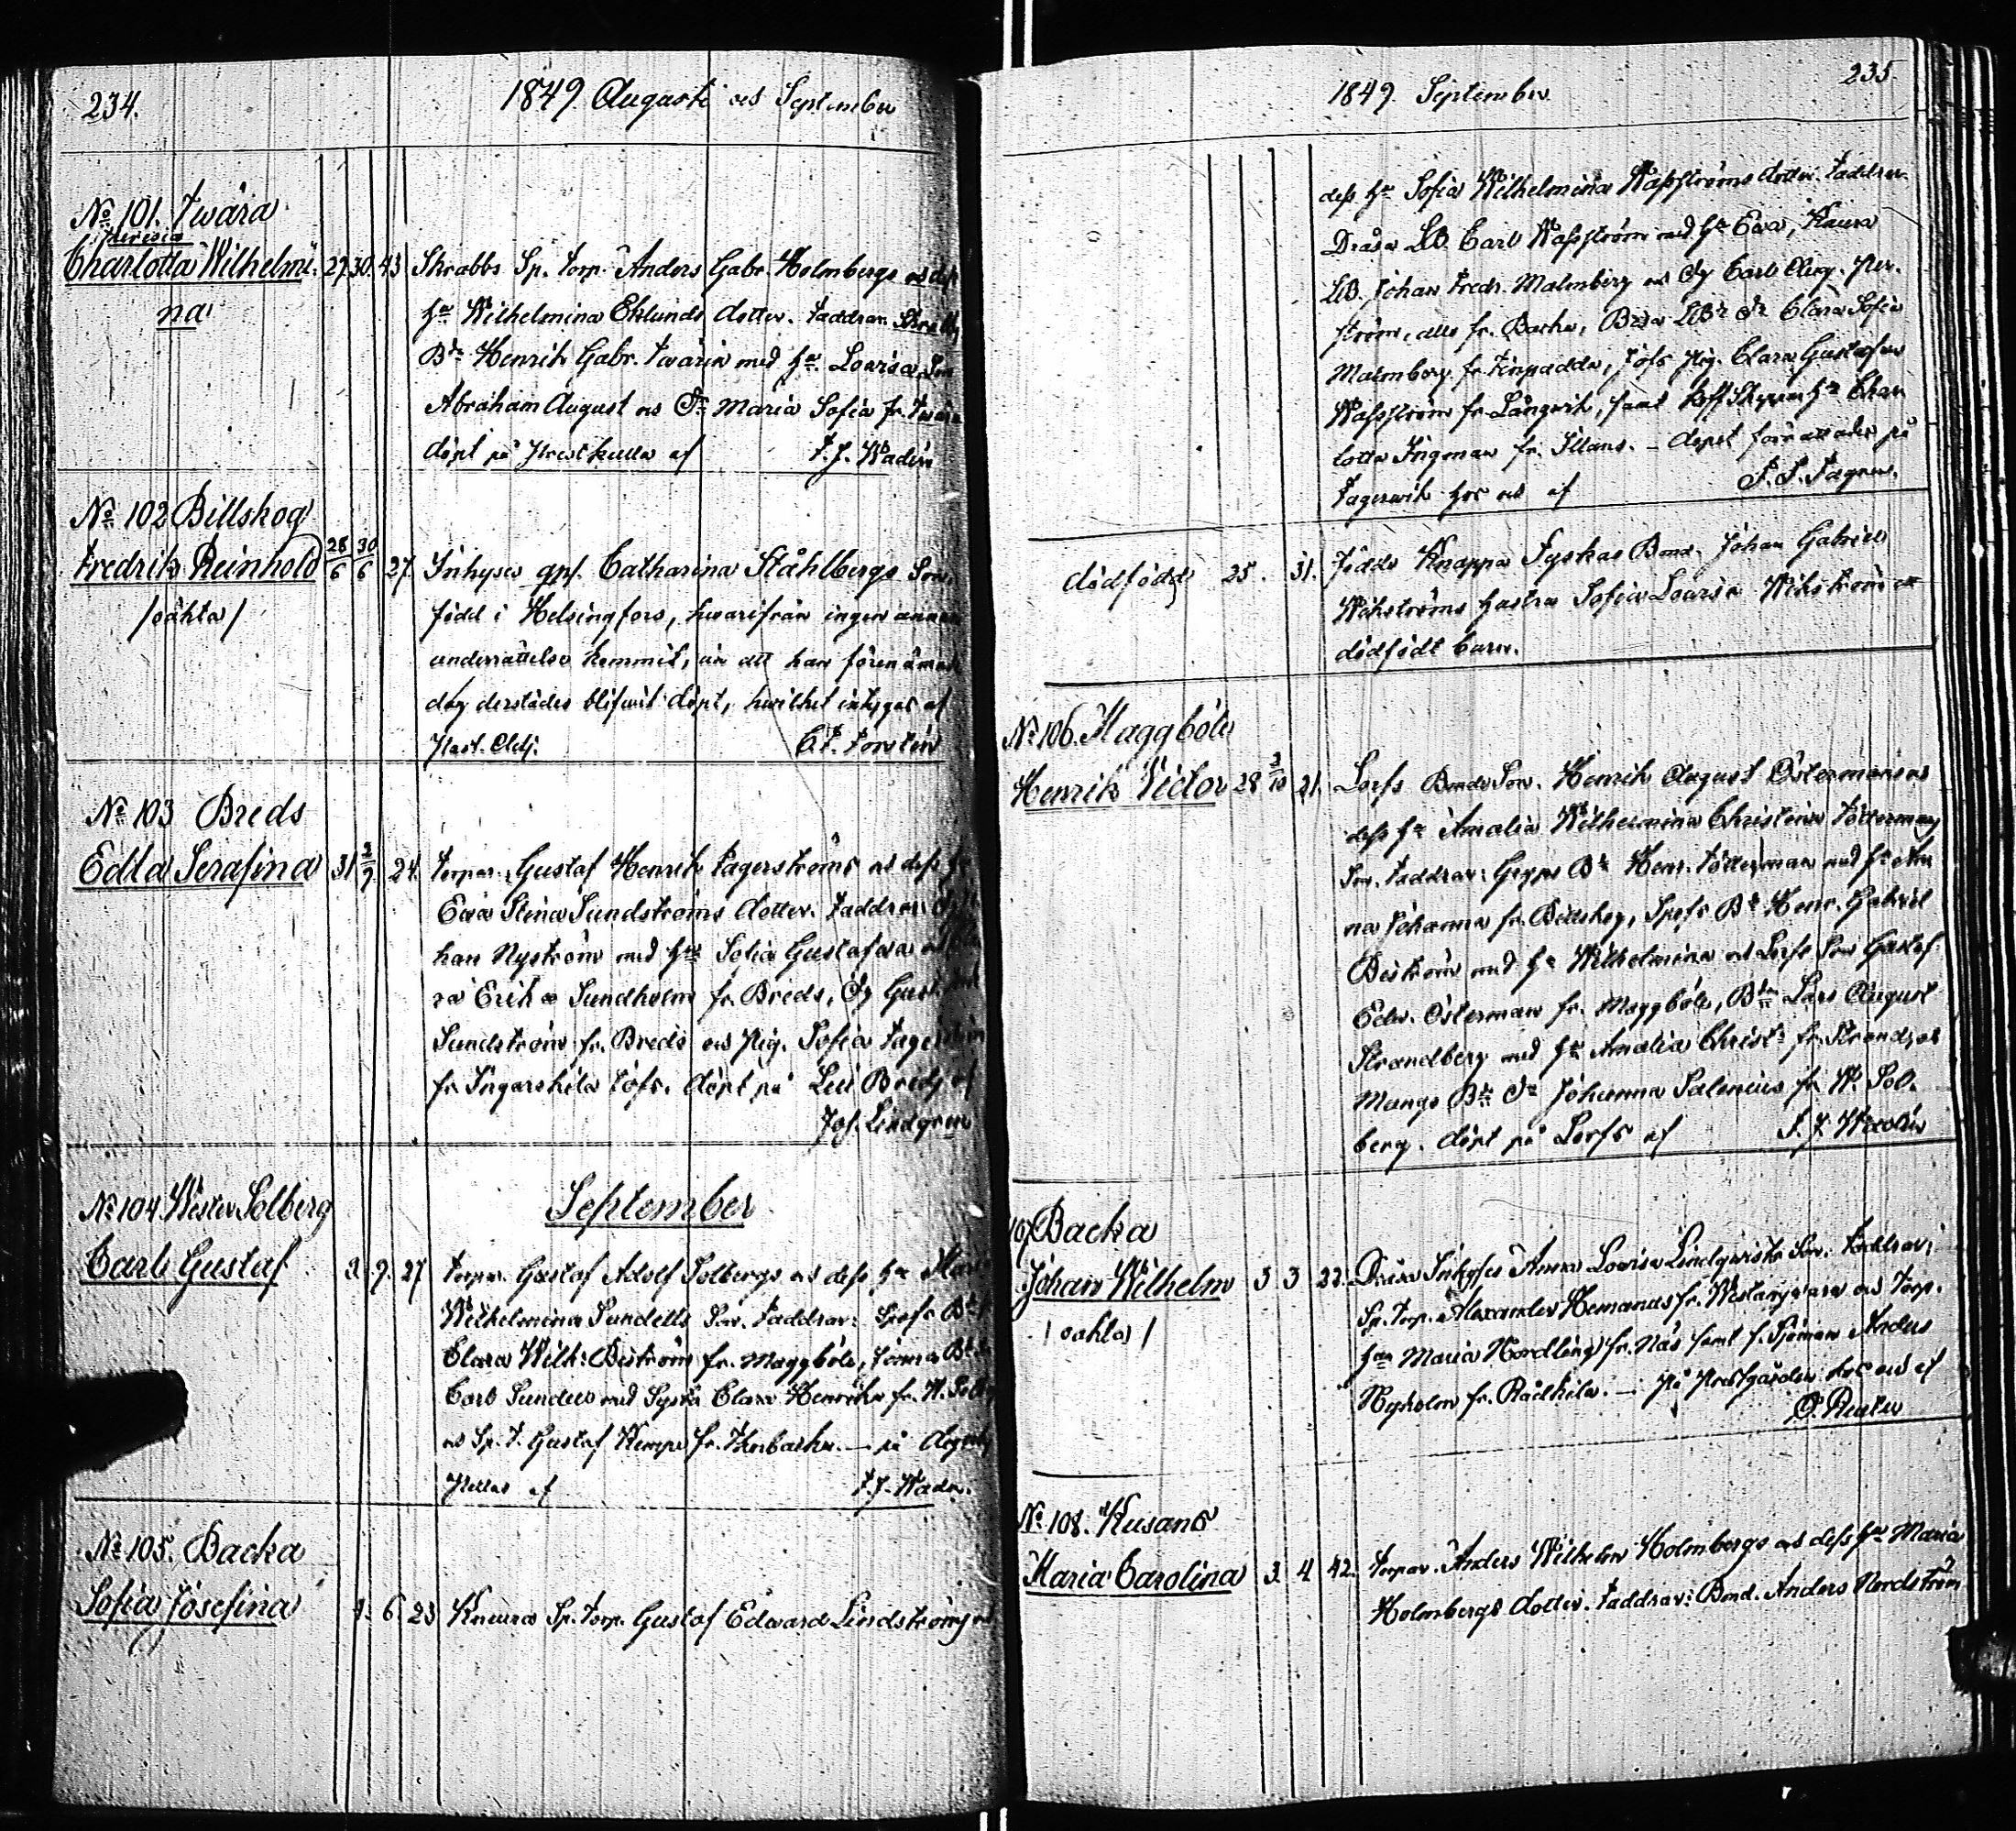 234.
1849 Augusti och September
No 101. Twära
Theresia
Charlotta Wilhelmi- 27. 30. 43 Skrabbs Sp. torp. Anders Gabr. Holmbergs och dess
na
Hu Wilhelmina Eklunds dotter. Faddrar: Skrabbs
Bdn Henrik Gabr. Twärin med Hu Lovisa, Son
Abraham August och Dr Maria Sofia fr. Twära
döpt på Prestkulla af F. J. Wadén
No 102 Billskog
Fredrik Reinhold 28/6 30/6 27. Inhyses qpf. Catharina Ståhlbergs Son,
/oäkta/
född i Helsingfors, hwarifrån ingen annan
underrättelse kommit, än att han förenämnde
dag derstädes blifwit döpt, hwilket intygas af
Past. Adj. C. F. Forstén
No 103 Breds
Edla Serafina 31 2/9. 24. torpar. Gustaf Henrik Fagerströms och dess Hu
Ewa Stina Sundströms dotter. Faddrar:
han Nyström med Hu Sofia Gustafwa och
ra Erika Sundholm fr. Breds, Dg Gust.
Sundström fr. Breds och Pig. Sofia Fagerström
fr. Ingarskila Tofs. döpt på Lill Breds af
Jos. Lindgren
September
No 104 Wester Solberg
Carl Gustaf 2. 9. 27 torpar. Gustaf Adolf Solbergs och dess Hu Maria
Wilhelmina Sundells Son. Faddrar: Spofs
Clara Wilh: Biström fr. Maggböle,
Carl Sundell med Syster Clara Henrika fr. W. Solberg
och Sp. T. Gustaf Kempe fr. — på
af F. J. Wadén.
No 105. Backa
Sofia Josefina 1. 6. 23 Kneura Sp. torp. Gustaf Edward Lindström och
235.
1849. September
dess Hu Sofia Wilhelmina Wassströms dotter. Faddrar:
Dråsa LB. Carl Wassström med Hu Ewa, Kneura
LB. Johan Fredr. Malmberg och Dg Carl Aug.
ström, alla fr. Backa, LBr Dr Clara Sofia
Malmberg fr. Finpadda, Tofs Pig. Clara Gustafwa
Wassström fr. Långwik, samt Hu Char-
lotta Ingman fr. — döpet förrättades på
Fagerwik hos och af
dödfödd 25. 31. Födde Knappa Tyskas Bond. Johan Gabriel
Wikströms hustru Sofia Lovisa Wikström ett
dödfödt barn.
No 106. Maggböle
Henrik Victor 28 2/10 21. Lorfs Bonde Son. Henrik August Östermans och
dess Hu Amalia Wilhelmina Christina Tötterman
Son. Faddrar: Bd Henr. Tötterman med Hu An-
na Johanna fr. Billskog, Spofs Bd Henr. Gabriel
Biström med Hu Wilhelmina och Lorfs Son Gustaf
Edw. Österman fr. Maggböle, Bdn Lars August
Strandberg med Hu Amalia Christ: fr. Strand, och
Mangs Bdr Dr Johanna Salenius fr. W. Sol-
berg. döpt på Lorfs af F. J. Wadén
107 Backa
Johan Wilhelm 3. 3 22. Dråsa Inhyses Anna Lovisa Lindqvists Son. Faddrar:
/oäkta/
Sp. torp. Alexander Hemanus fr. Westan och torp.
Hu Maria Nordling fr. Näs samt f. Sjöman Anders
Nyholm fr. Rådkila. — På Prestgården hos och af
No 108. Kusans
Maria Carolina 3. 4. 42. torpar. Anders Wilhelm Holmbergs och dess Hu Maria
Holmbergs dotter. Faddrar: Bond. Anders Nordström